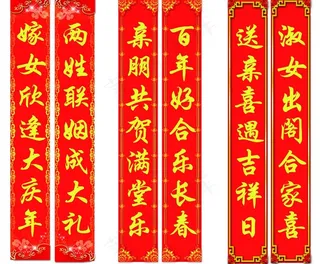 两姓联姻成大礼
嫁女欣逢大庆年
百年好合乐长春
亲朋共贺满堂乐
淑女出阁合家喜
送亲喜遇吉祥日